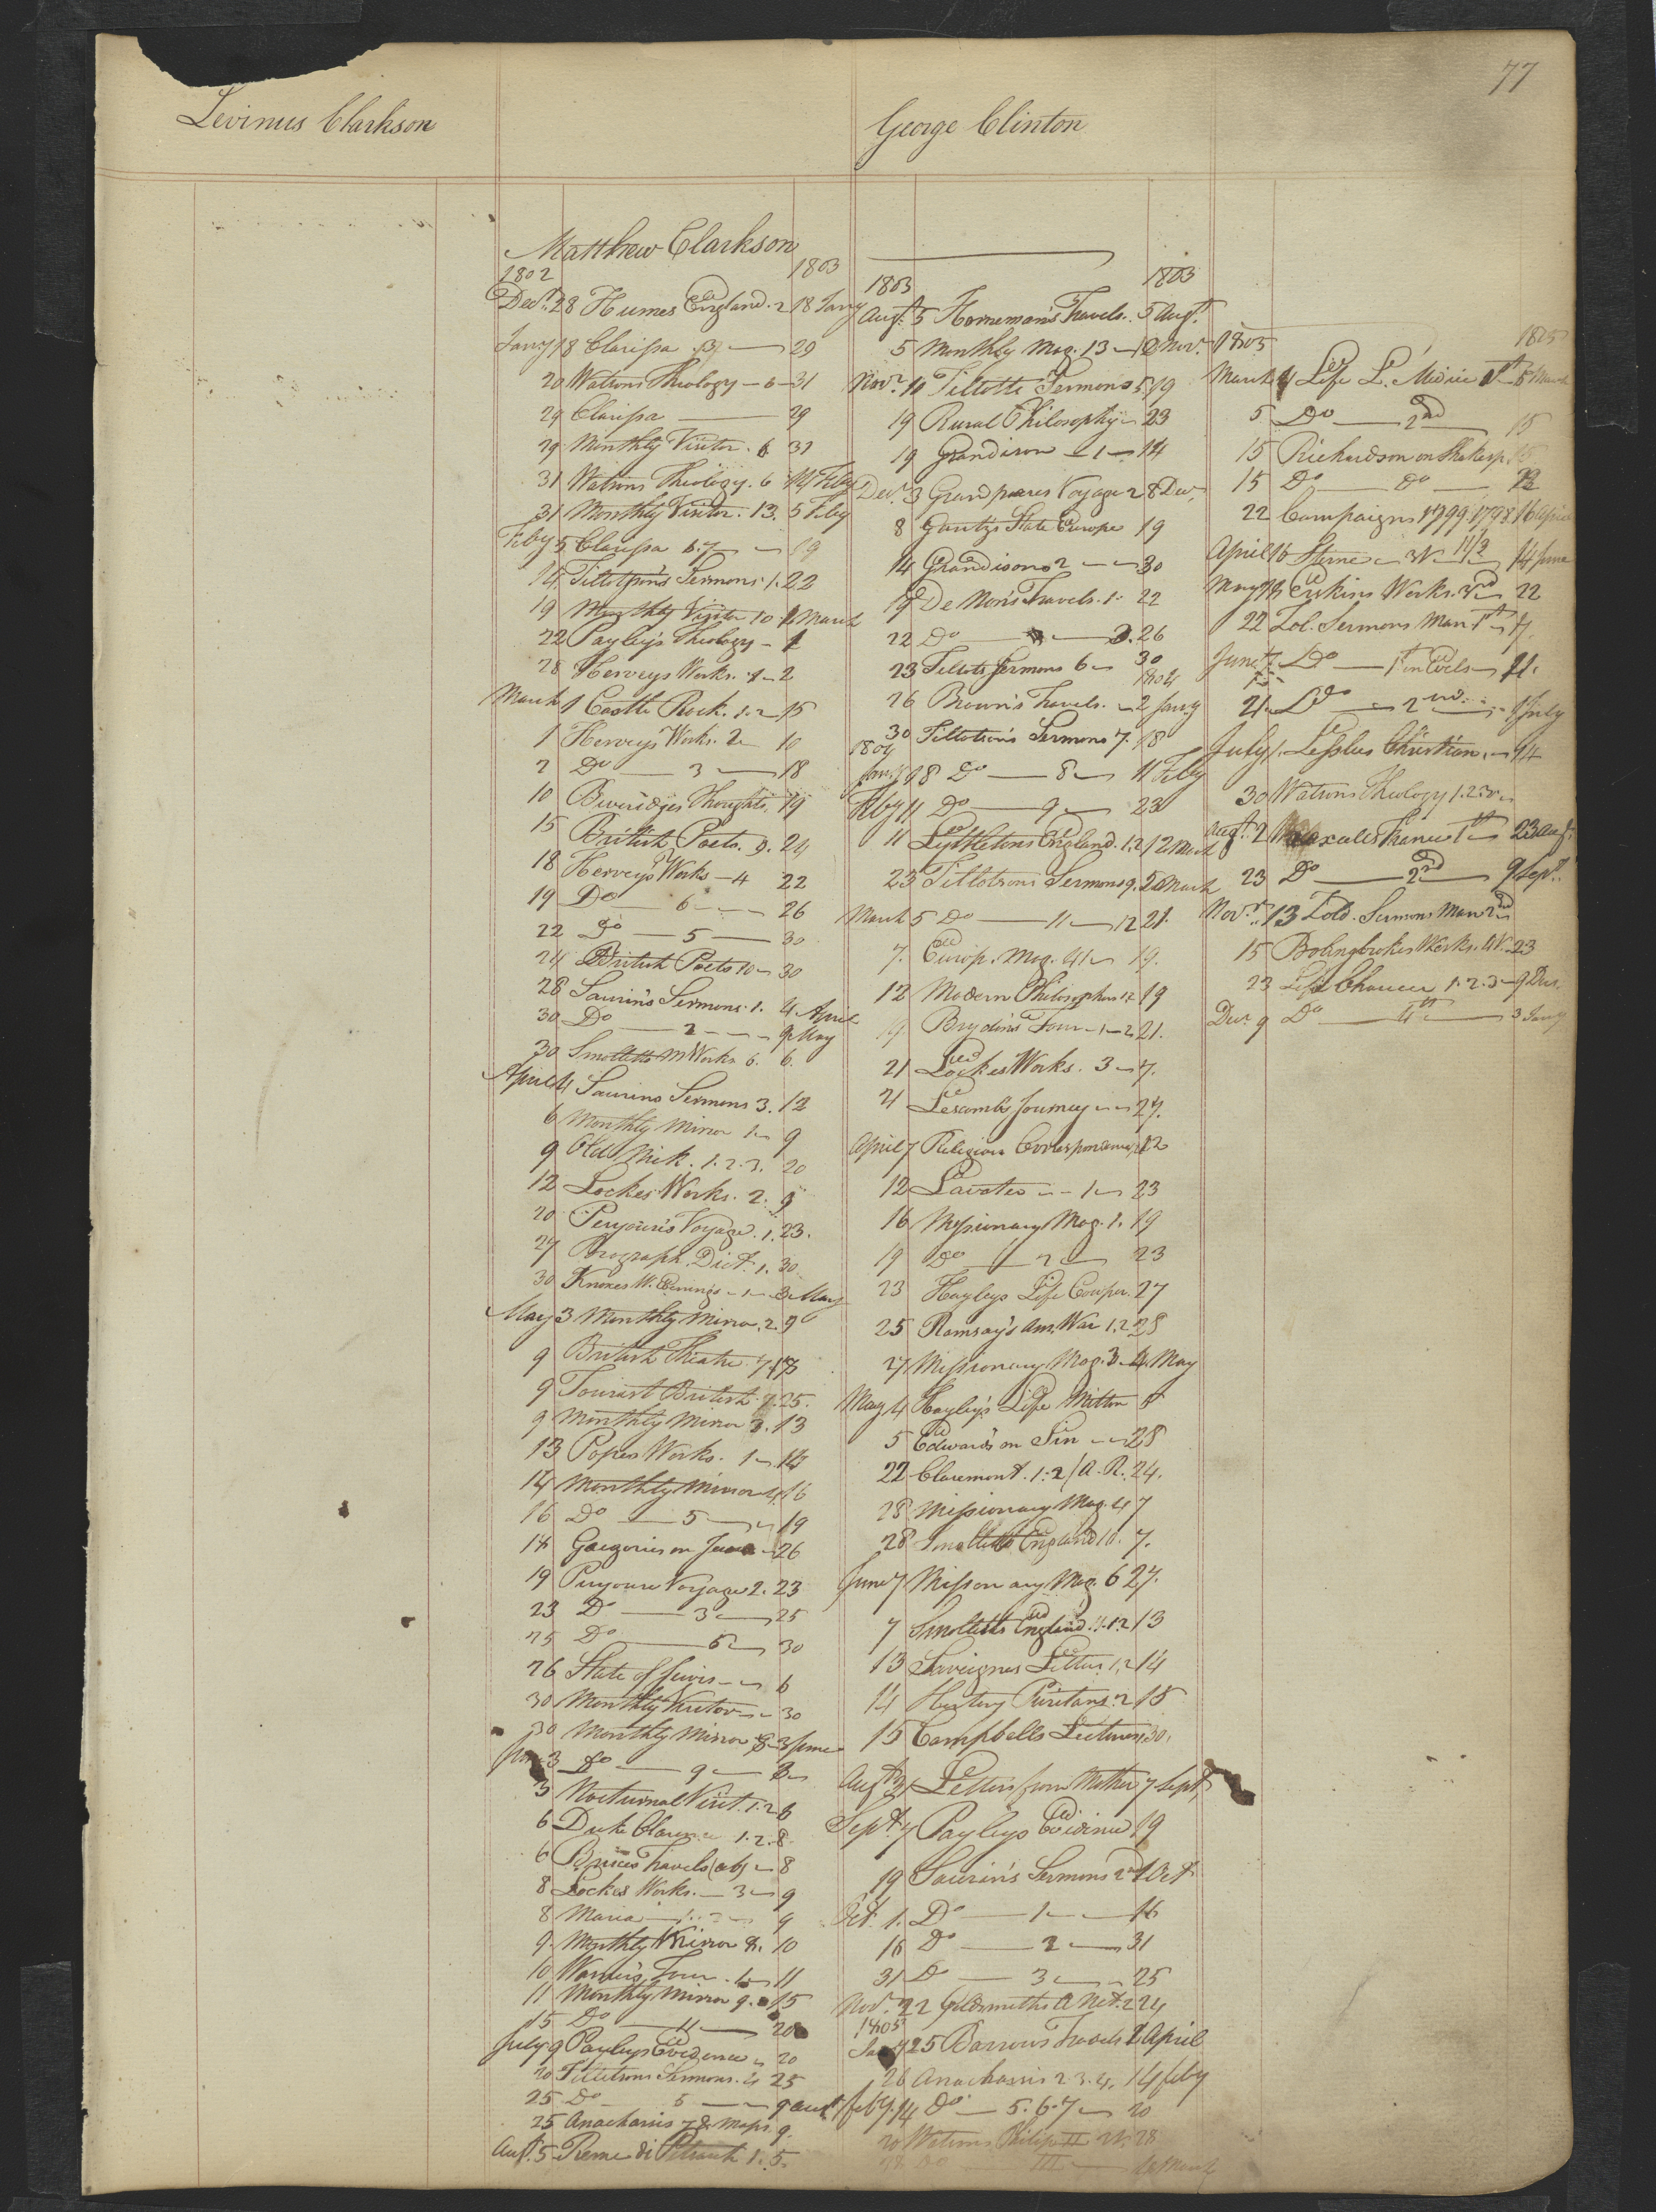 77
Levinus Clarkson
George Clinton
Matthew Clarkson
1802 1803
Decr. 28 Humes England. 2 18 Jany
Jany 18 Clarissa . 3 — 29
20 Watsons Theology — 6 — 31
29 Clarissa — 29
29 Monthly Visitor . 6 31
31 Watsons Theology . 6 14 Feby
31 Monthly Visitor . 13. 5 Feby
Feby 5 Clarissa 6.7 — 19
14 Tillotson's Sermons . 1. 22
19 Monthly Visitor 10 March
22 Payley's Theology — 1
28 Herveys Works . 1 — 2
March 1 Castle Rock . 1.2 — 15
1 Herveys Works. 2 — 10
2 Do — 3 — 18
10 Beveridges Thoughts. 19
15 British Poets. 9. 24
18 Herveys Works — 4 22
19 Do — 6 — 26
22 Do — 5 — 30
24 British Poets 10 — 30
28 Saurin's Sermons. 1. 4 April
30 Do — 2 — 9 May
30 Smolletts M Works 6. 6.
April 4 Saurins Sermons 3. 12
6 Monthly Mirror 1 — 9
9 Old Nick. 1.2.3. 20
12 Lockes Works. 2. 9
20 Peryouse's Voyage . 1. 23.
27 Biograph. Dict. 1. 30
30 Knoxes W. Evenings — 1 — 3 May
May 3 Monthly Mirror. 2. 9
9 British Theatre
9 Tourist British 7. 25.
9 Monthly Mirror 3. 13
13 Popes Works. 1 — 14
14 Monthly Mirror 4. 16
16 Do — 5 — 19
18 Gregories on 26
19 Peryouse Voyage 2. 23
23 Do — 3 — 25
25 Do — 30
26 State of Jewis — 6
30 Monthly Visitor — 30
30 Monthly Mirror 8 — 3 June
June 3 Do — 9 —
3 Nocturnal Visit. 1.2 6
6 Duke Clarence 1.2. 8
6 Bruces Travels (ab) — 8
8 Lockes Works. — 3 — 9
8 Maria — 9
9. Monthly Mirror 8. 10
10 Warners Tour . 11
11 Monthly Mirror 9. 15
15 Do — 11 — 20
July 9 Payleys Evidence 20
20 Tillotsons Sermons. 4 25
25 Do 5 — 9 Augt
25 Anacharsis & Maps 9.
Augt. 5 Reme di Petrarch 1. 5.
1803 1803
Augt. 5 Hornemans Travels. 5 Augt.
5 Monthly Mag. 13 — 12 Novr.
Novr. 10 Tillotts Sermons 5. 19
19 Rural Philosophy — 23
19 Grandison — 1 — 14
Decr. 3 Grandpres Voyage 2 8 Decr.
8 Gentz's State Europe 19
14 Grandison 2 — 30
19 De Non's Travels. 1. 22
22 Do — 2. 26
23 Tillots Sermons 6 — 30
1804
26 Brown's Travels. — 2 Jany
30 Tillotson's Sermons 7. 18
1804
Jany 18 Do — 8 — 11 Feby
Feby 11 Do — 9 — 23
11 Lyttletons England. 1.2 12 March
23 Tillotsons Sermons 9. 5 March
March 5 Do — 11 — 12 21.
7. Europ. Mag. 41 — 19.
12 Modern Philosophers 1.2 19
19 Brydon's Tour — 1 — 2 21.
21 Lockes Works. 3 — 7.
21 Lescomb's Journey — 27.
April 7 Religious Correspondence 12
12 Lavater — 1 — 23
16 Missionary Mag. 1. 19
19 Do — 2 — 23
23 Hayleys Life Cowper. 27
25 Ramsay's Am. War 1.2 28
27 Missionary Mag. 3 — 4 May
May 4 Hayley's Life Milton 5
5 Edwards on Sin — 28
22 Claremont. 1.2 /A. R. 24.
28 Missionary Mag. 4 7
28 Smolletts England 10. 7.
June 7 Missionary Mag. 6 27.
7 Smolletts England. 11.12 13
13 Sevignes Letters 1.2 14
14 History Puritans. 2 15
15 Campbells Lectures 30.
Augt. 31 Letters from Mother 7 Sept.
Sept. 7 Payleys Evidence 19
19 Saurin's Sermons 2nd 1 Oct.
Oct. 1. Do — 1 — 16
16 Do — 2 — 31
31 Do — 3 — 25
Novr. 22 Goldsmiths A Nat. 2 24
1805
Jany 25 Barrows Travels 2 April
26 Anacharsis 2.3.4. 14 Feby
Feby. 14 Do — 5.6.7 — 20
20 Watsons Philip II 28
28 Do — III — March
1805 1805
March 4 Life L. Medici 1st 5 March
5 Do — 2nd 15
15 Richardson on Shakesp. 15
15 Do — Do —
22 Campaigns 1799. 1798. 16 April
April 16 Sterne — 14 June
May Erskins Works. 22
22 Zol. Sermons Man 1st — 7.
June 7 Do — 1st on Evils — 21.
21. Do — 2nd — 1 July
July 1. Lesslus Christian. — 14
30 Watsons Theology 1.2.
Augt. 2 Wraxalls France 1st 23 Augt.
23 Do — 2nd — 9 Sept.
Novr. 13 Zold. Sermons Man 2nd
15 Bolingbrokes Works. 23
23 Life Chaucer 1.2.3 — 9 Decr.
Decr. 9 Do — 4th — 3 Jany